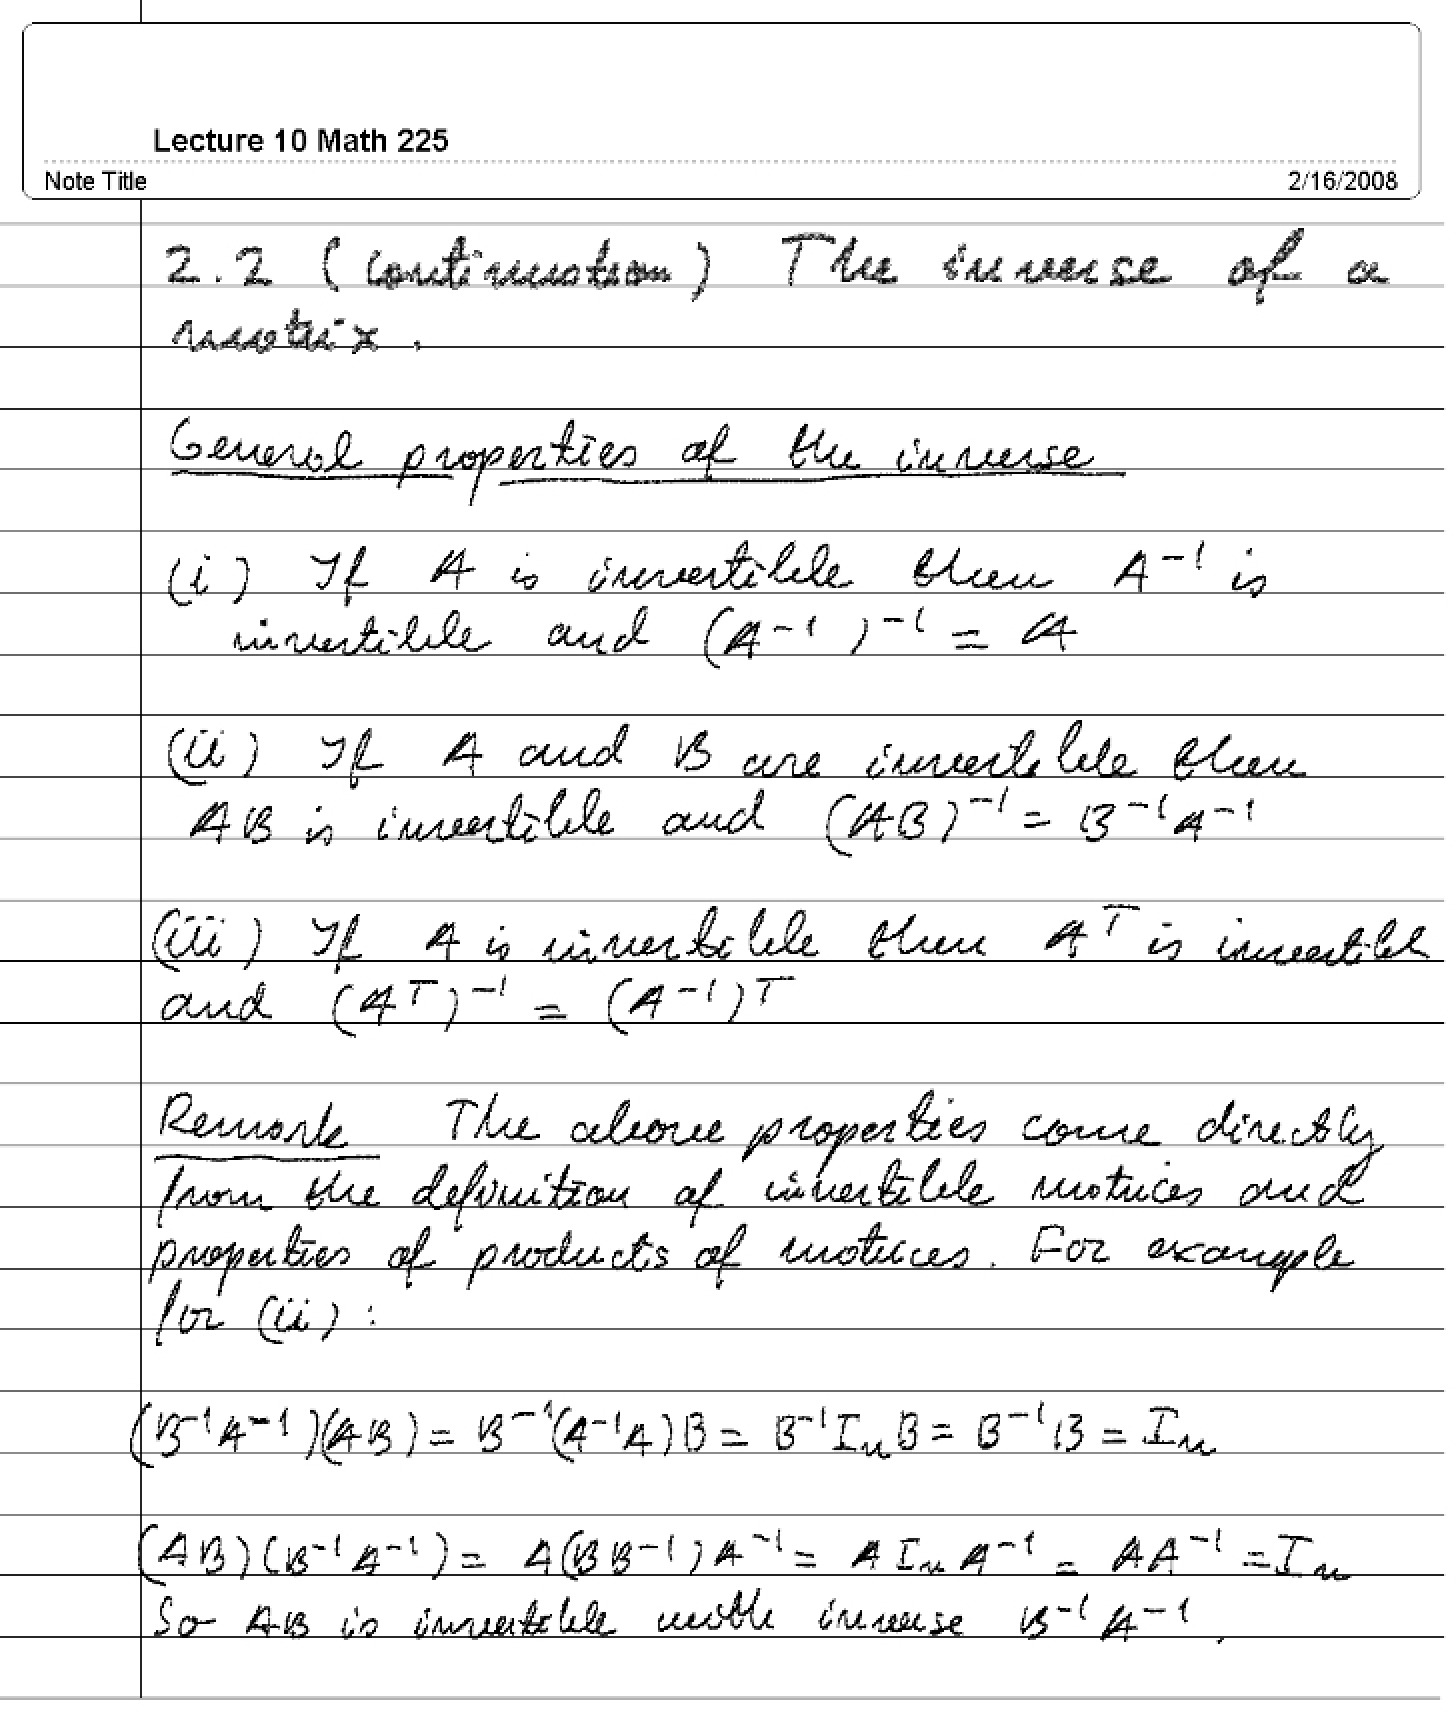 Lecture 10 Math 225
Note Title 2/16/2008
2.2 (continuation) The inverse of a
matrix.
General properties of the inverse
(i) If A is invertible then A⁻¹ is
invertible and (A⁻¹)⁻¹ = A
(ii) If A and B are invertible then
AB is invertible and (AB)⁻¹ = B⁻¹A⁻¹
(iii) If A is invertible then Aᵀ is invertible
and (Aᵀ)⁻¹ = (A⁻¹)ᵀ
Remark The above properties come directly
from the definition of invertible matrices and
properties of products of matrices. For example
for (ii):
(B⁻¹A⁻¹)(AB) = B⁻¹(A⁻¹A)B = B⁻¹IₙB = B⁻¹B = Iₙ
(AB)(B⁻¹A⁻¹) = A(BB⁻¹)A⁻¹ = AIₙA⁻¹ = AA⁻¹ = Iₙ
So AB is invertible with inverse B⁻¹A⁻¹.